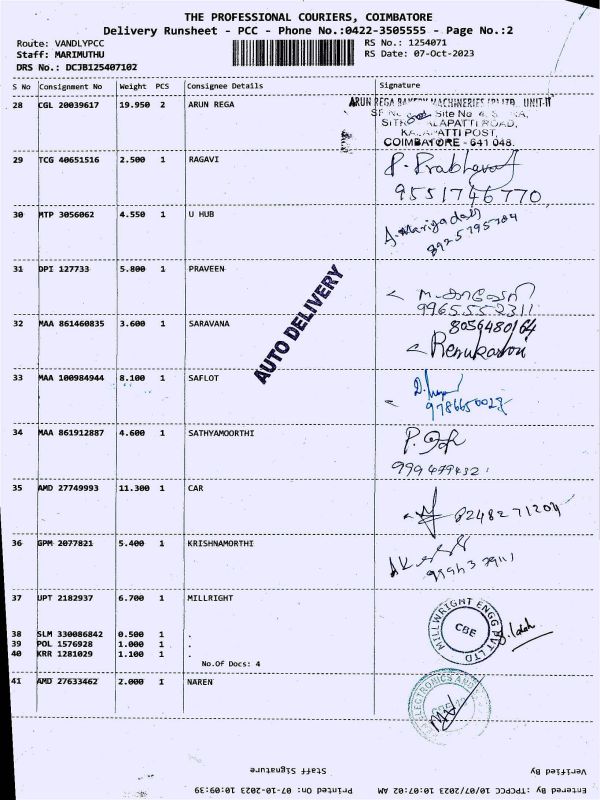 THE PROFESSIONAL COURIERS, COIMBATORE
Delivery Runsheet - PCC - Phone No.:0422-3505555 - Page No.:2
Route: VANDLYPCC RS No.: 1254071
Staff: MARIMUTHU RS Date: 07-Oct-2023
DRS No.: DCJB125407102
S No Consignment No Weight PCS Consignee Details Signature
28 CGL 20039617 19.950 2 ARUN REGA ARUN REGA BAKERY MACHINERIES (P) LTD, UNIT-II
Site No
ALAPATTI ROAD,
ATTI POST,
COIMBATORE - 641 048.
29 TCG 40651516 2.500 1 RAGAVI P. Prabhavat
9551746770
30 MTP 3056062 4.550 1 U HUB
8925795704
31 DPI 127733 5.800 1 PRAVEEN
9965552311
32 MAA 861460835 3.600 1 SARAVANA 8056480164
Renukadevi
AUTO DELIVERY
33 MAA 100984944 8.100 1 SAFLOT
34 MAA 861912887 4.600 1 SATHYAMOORTHI
35 AMD 27749993 11.300 1 CAR 8248271204
36 GPM 2077821 5.400 1 KRISHNAMORTHI
37 UPT 2182937 6.700 1 MILLRIGHT MILLWRIGHT ENGG PVT LTD
CBE
38 SLM 330086842 0.500 1 .
39 POL 1576928 1.000 1 .
40 KRR 1281029 1.100 1 .
No.Of Docs: 4
41 AMD 27633462 2.000 1 NAREN ELECTRONICS AND
Verified By Staff Signature
Entered By: TPCPCC: 10/07/2023 10:07:02 AM Printed On: 07-10-2023 10:09:39